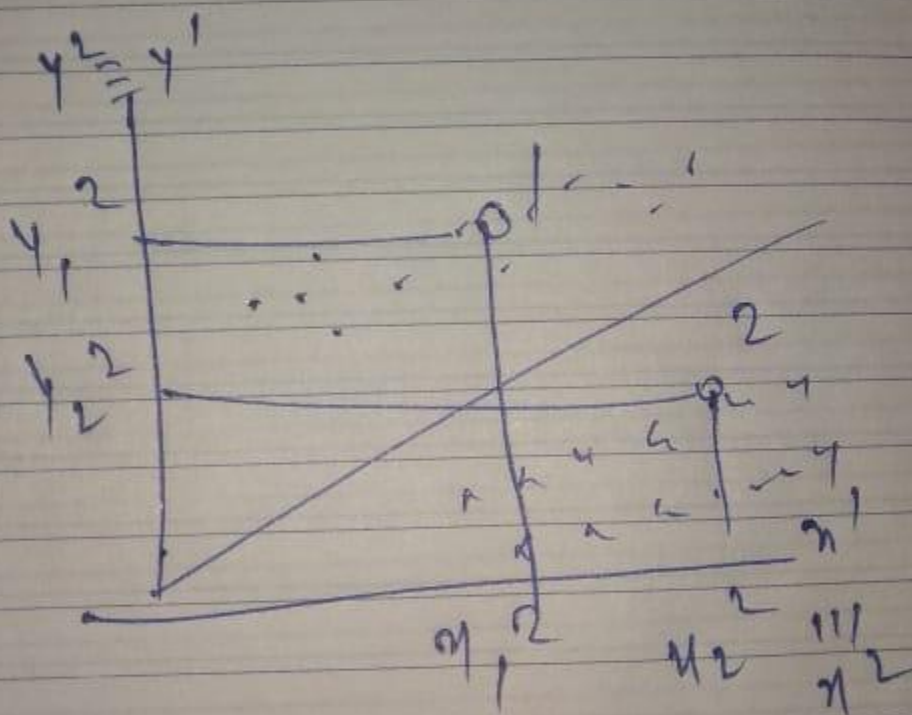 y² ≡ y¹
y₁²
1
y₂²
2
x¹
x₁²
x₂²
|||
x²